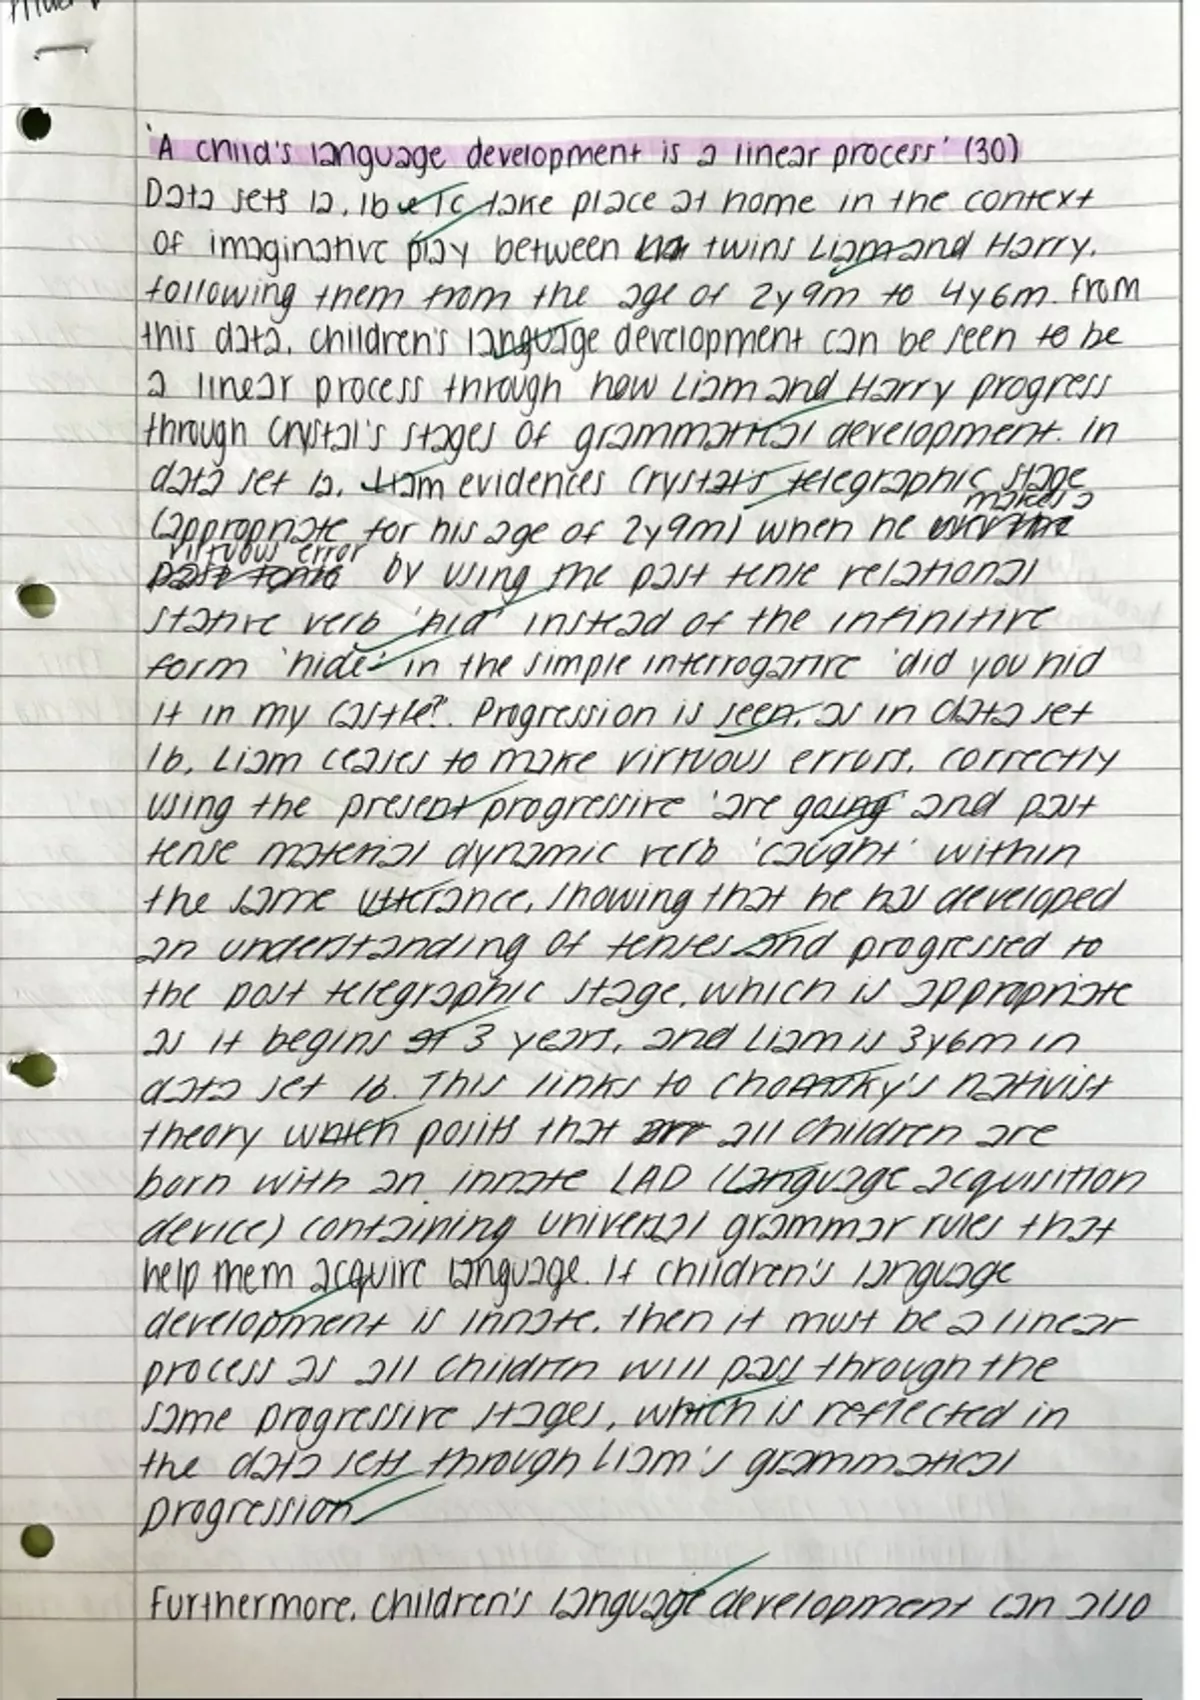 'A child's language development is a linear process' (30)
Data sets 1a, 1b & 1c take place at home in the context
of imaginative play between twins Liam and Harry,
following them from the age of 2y9m to 4y6m. From
this data, children's language development can be seen to be
a linear process through how Liam and Harry progress
through Crystal's stages of grammatical development. In
data set 1a, Liam evidences Crystal's telegraphic stage
(appropriate for his age of 2y9m) when he makes a
virtuous error by using the past tense relational
stative verb 'hid' instead of the infinitive
form 'hide' in the simple interrogative 'did you hid
it in my castle?'. Progression is seen, as in data set
1b, Liam ceases to make virtuous errors, correctly
using the present progressive 'are going' and past
tense material dynamic verb 'caught' within
the same utterance, showing that he has developed
an understanding of tenses and progressed to
the post telegraphic stage, which is appropriate
as it begins at 3 years, and Liam is 3y6m in
data set 1b. This links to Chomsky's nativist
theory which posits that all children are
born with an innate LAD (language acquisition
device) containing universal grammar rules that
help them acquire language. If children's language
development is innate, then it must be a linear
process as all children will pass through the
same progressive stages, which is reflected in
the data sets through Liam's grammatical
progression.
Furthermore, children's language development can also